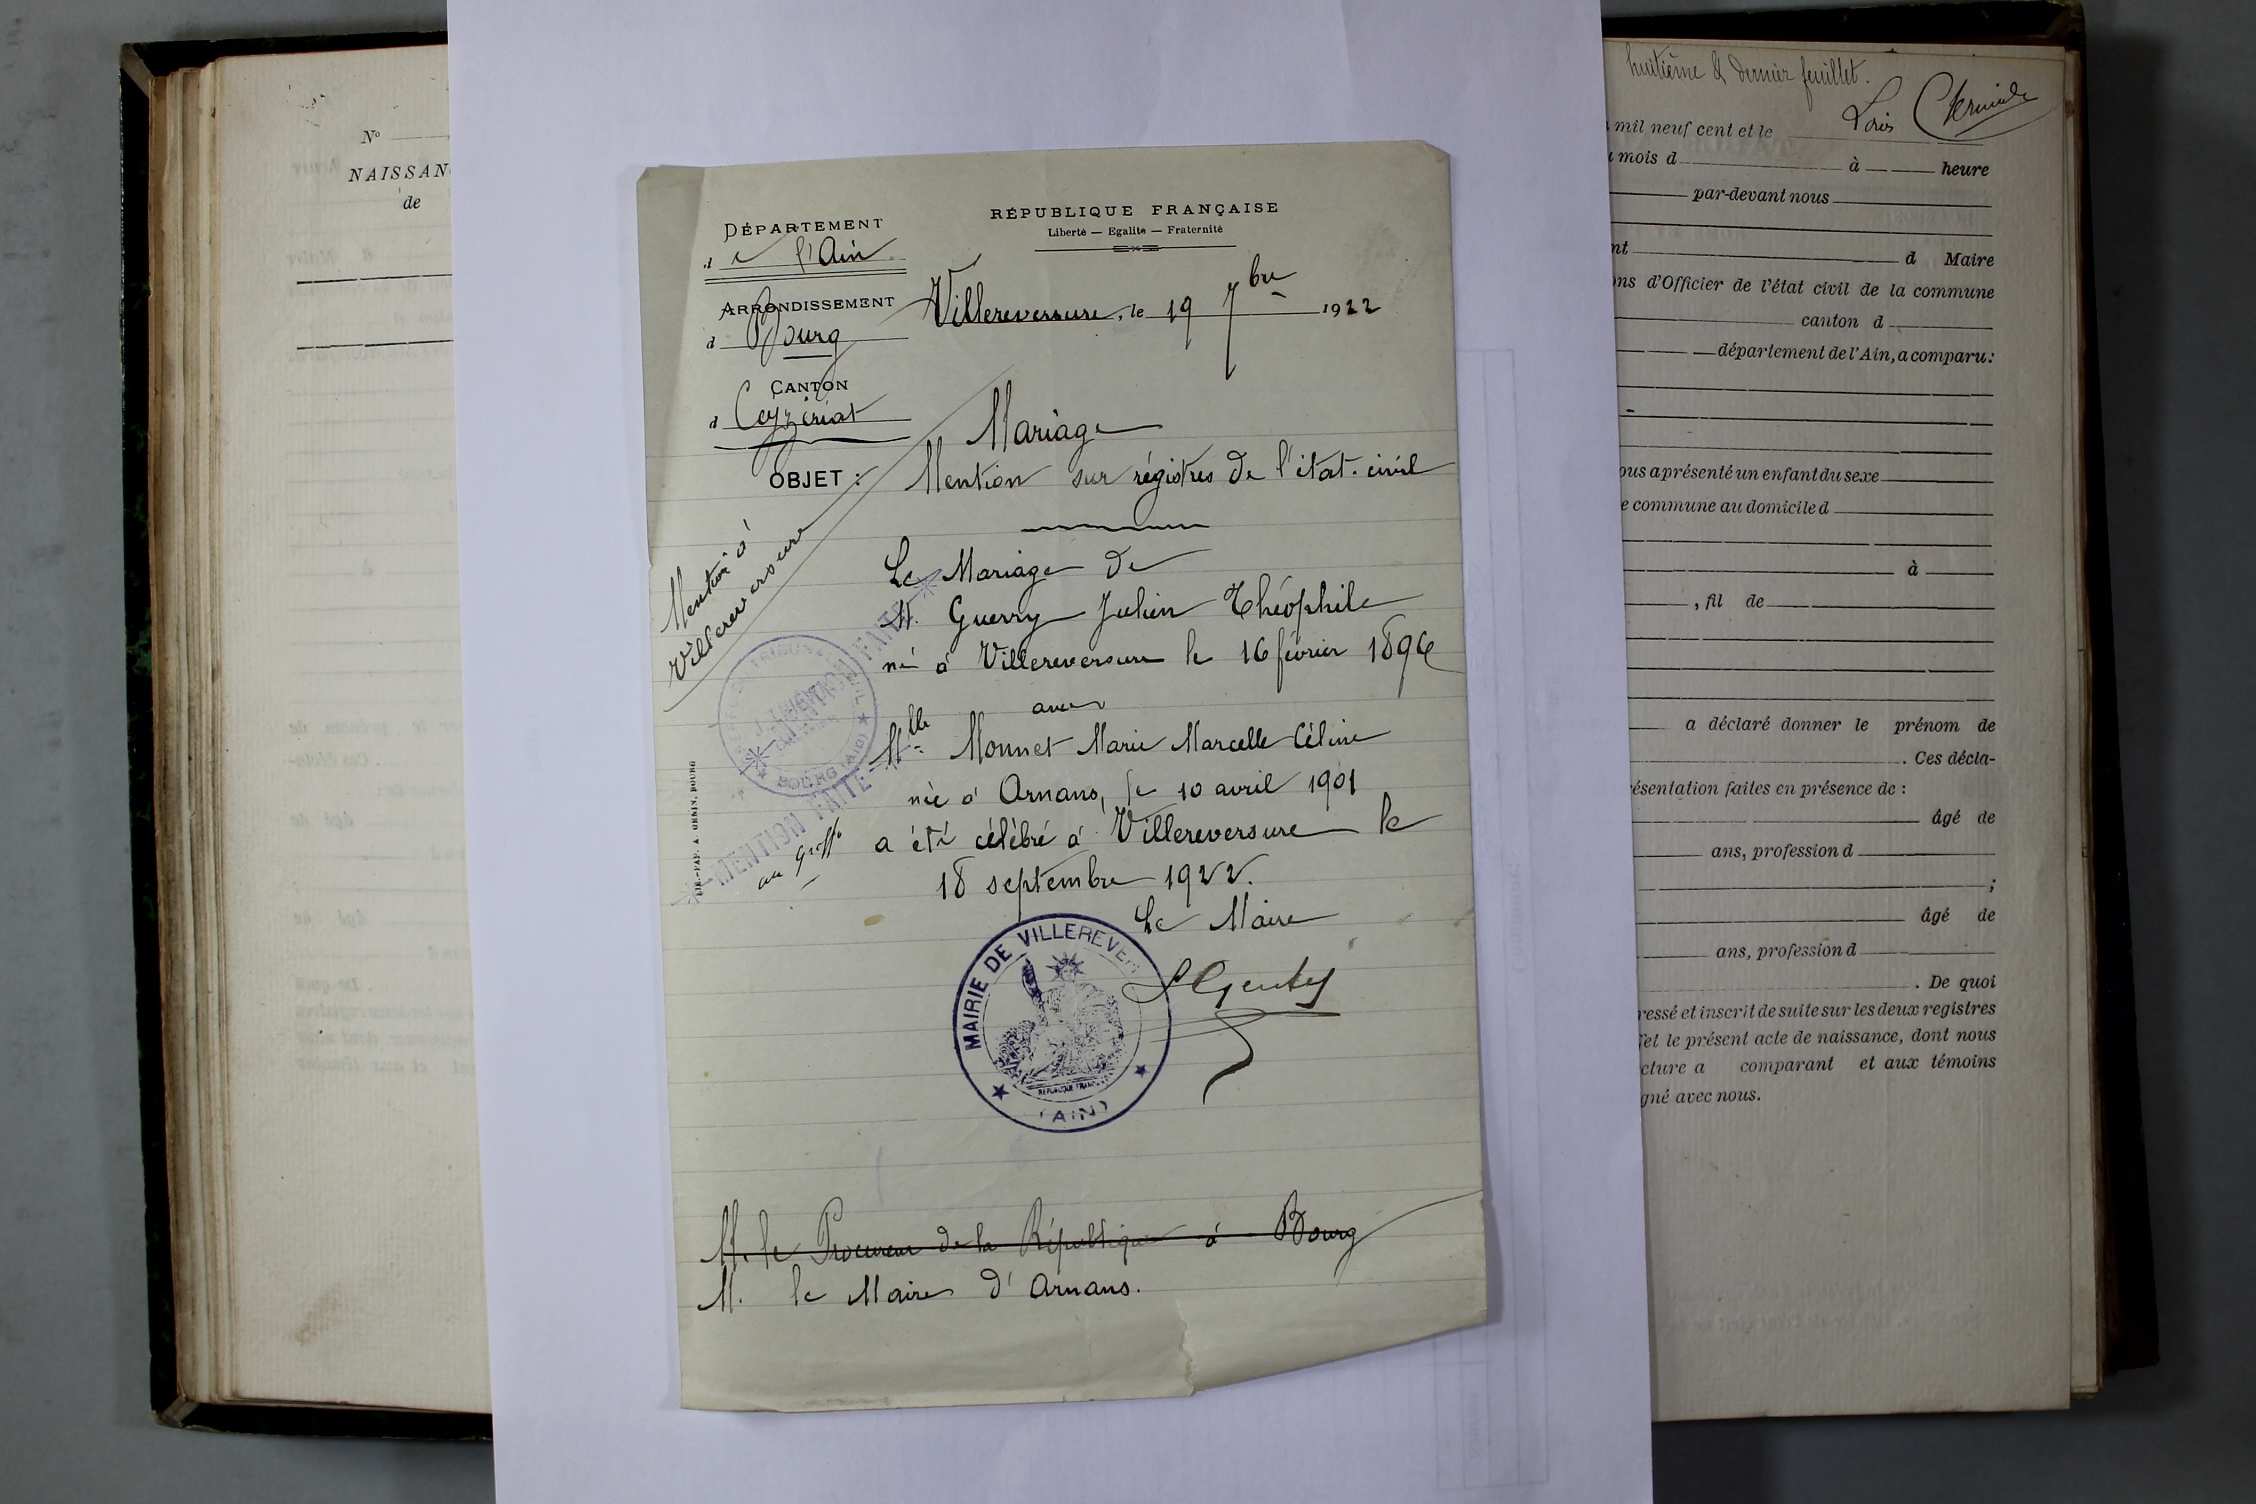 N°
NAISSAN
de
DÉPARTEMENT
de l'Ain
ARRONDISSEMENT
d Bourg
CANTON
d Ceyzériat
RÉPUBLIQUE FRANÇAISE
Liberté — Egalité — Fraternité
Villereversure, le 19 7bre 1922
Mariage
OBJET : Mention sur régistres de l'état-civil
Mention à
Villereversure
Le Mariage de
M. Guerry Julien Théophile
né à Villereversure le 16 février 1896
avec
Mlle Monnet Marie Marcelle Céline
née à Arnans, le 10 avril 1901
a été célébré à Villereversure le
18 septembre 1922.
Le Maire
MENTION FAITE
MENTION FAITE
au greffe
BOURG (AIN)
MAIRIE DE VILLEREVER
RÉPUBLIQUE FRANÇ
(AIN)
M. le Procureur de la République à Bourg
M. le Maire d'Arnans.
huitième & dernier feuillet.
mil neuf cent et le
mois d à heure
par-devant nous
nt d Maire
ons d'Officier de l'état civil de la commune
canton d
département de l'Ain, a comparu :
ous a présenté un enfant du sexe
e commune au domicile d
à
, fil de
a déclaré donner le prénom de
. Ces décla-
résentation faites en présence de :
âgé de
ans, profession d
;
âgé de
ans, profession d
. De quoi
ressé et inscrit de suite sur les deux registres
fet le présent acte de naissance, dont nous
cture a comparant et aux témoins
gné avec nous.